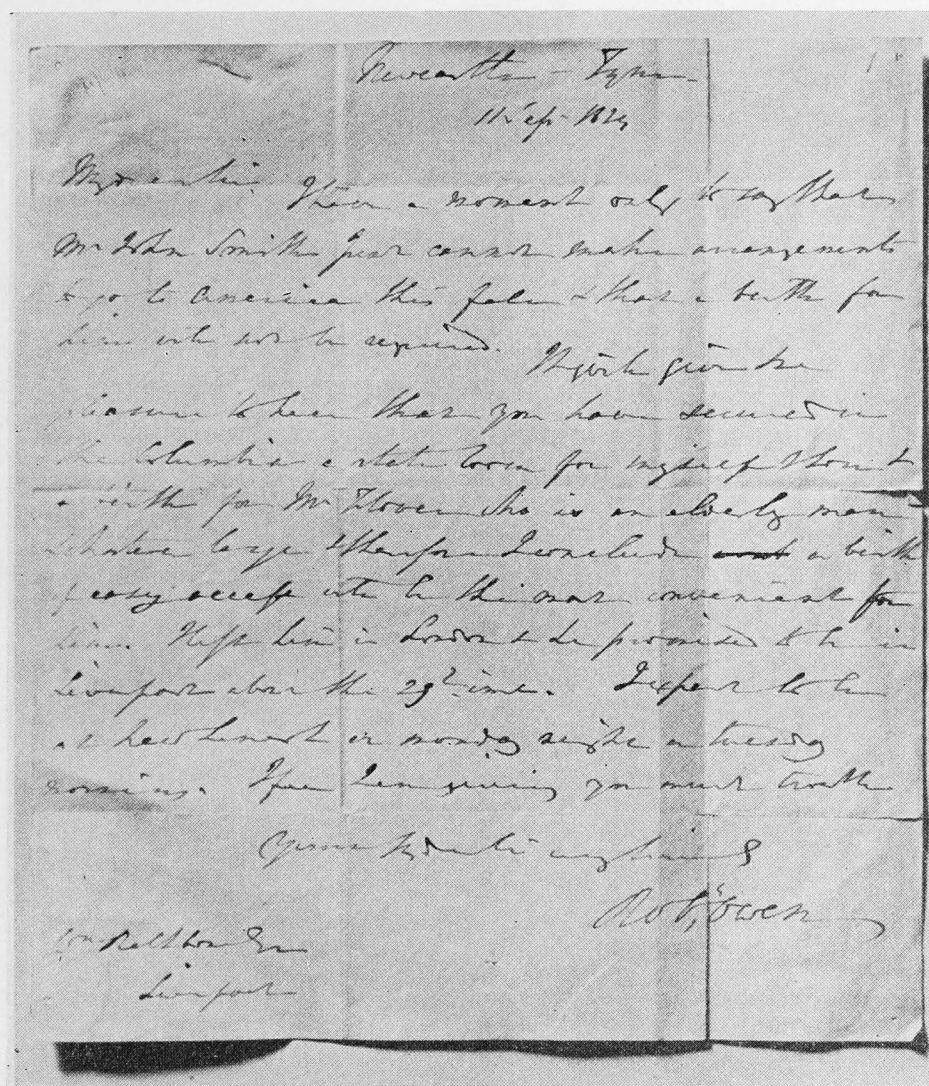 Newcastle - Tyne -
11 Sep. 1824
My dear Sir. I have a moment only to say that
Mr John Smith cannot make arrangements
to go to America this fall & that a birth for
him will not be required. It will give me
pleasure to hear that you have secured in
the Columbia a state room for myself &
a birth for Mr Flower who is an elderly man
large & therefore I conclude a birth
of easy access will be the most convenient for
him. I left him in London & he promised to be in
Liverpool about the 29th inst. I expect to be
at on monday night or tuesday
morning. I fear I am giving you much trouble
Yours my dear Sir very sincerely
Robt Owen
Wm Ralston Esqr
Liverpool